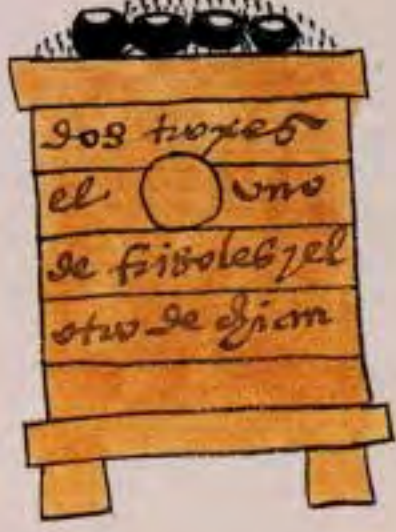 dos troxes
el uno
de frisoles y el
otro de chian